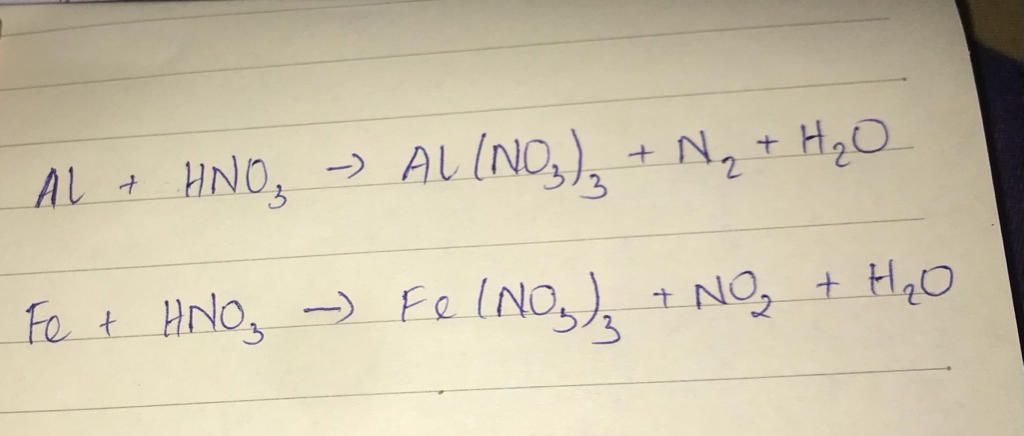 Al + HNO₃ → Al(NO₃)₃ + N₂ + H₂O
Fe + HNO₃ → Fe(NO₃)₃ + NO₂ + H₂O